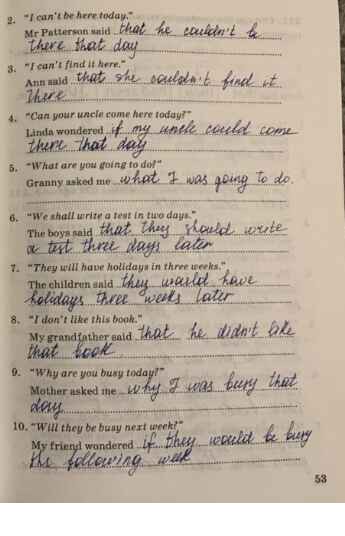 2. "I can't be here today."
Mr Patterson said that he couldn't be
there that day
3. "I can't find it here."
Ann said that she couldn't find it
there
4. "Can your uncle come here today?"
Linda wondered if my uncle could come
there that day
5. "What are you going to do?"
Granny asked me what I was going to do.
6. "We shall write a test in two days."
The boys said that they should write
a test three days later
7. "They will have holidays in three weeks."
The children said they would have
holidays three weeks later
8. "I don't like this book."
My grandfather said that he didn't like
that book
9. "Why are you busy today?"
Mother asked me why I was busy that
day
10. "Will they be busy next week?"
My friend wondered if they would be busy
the following week
53